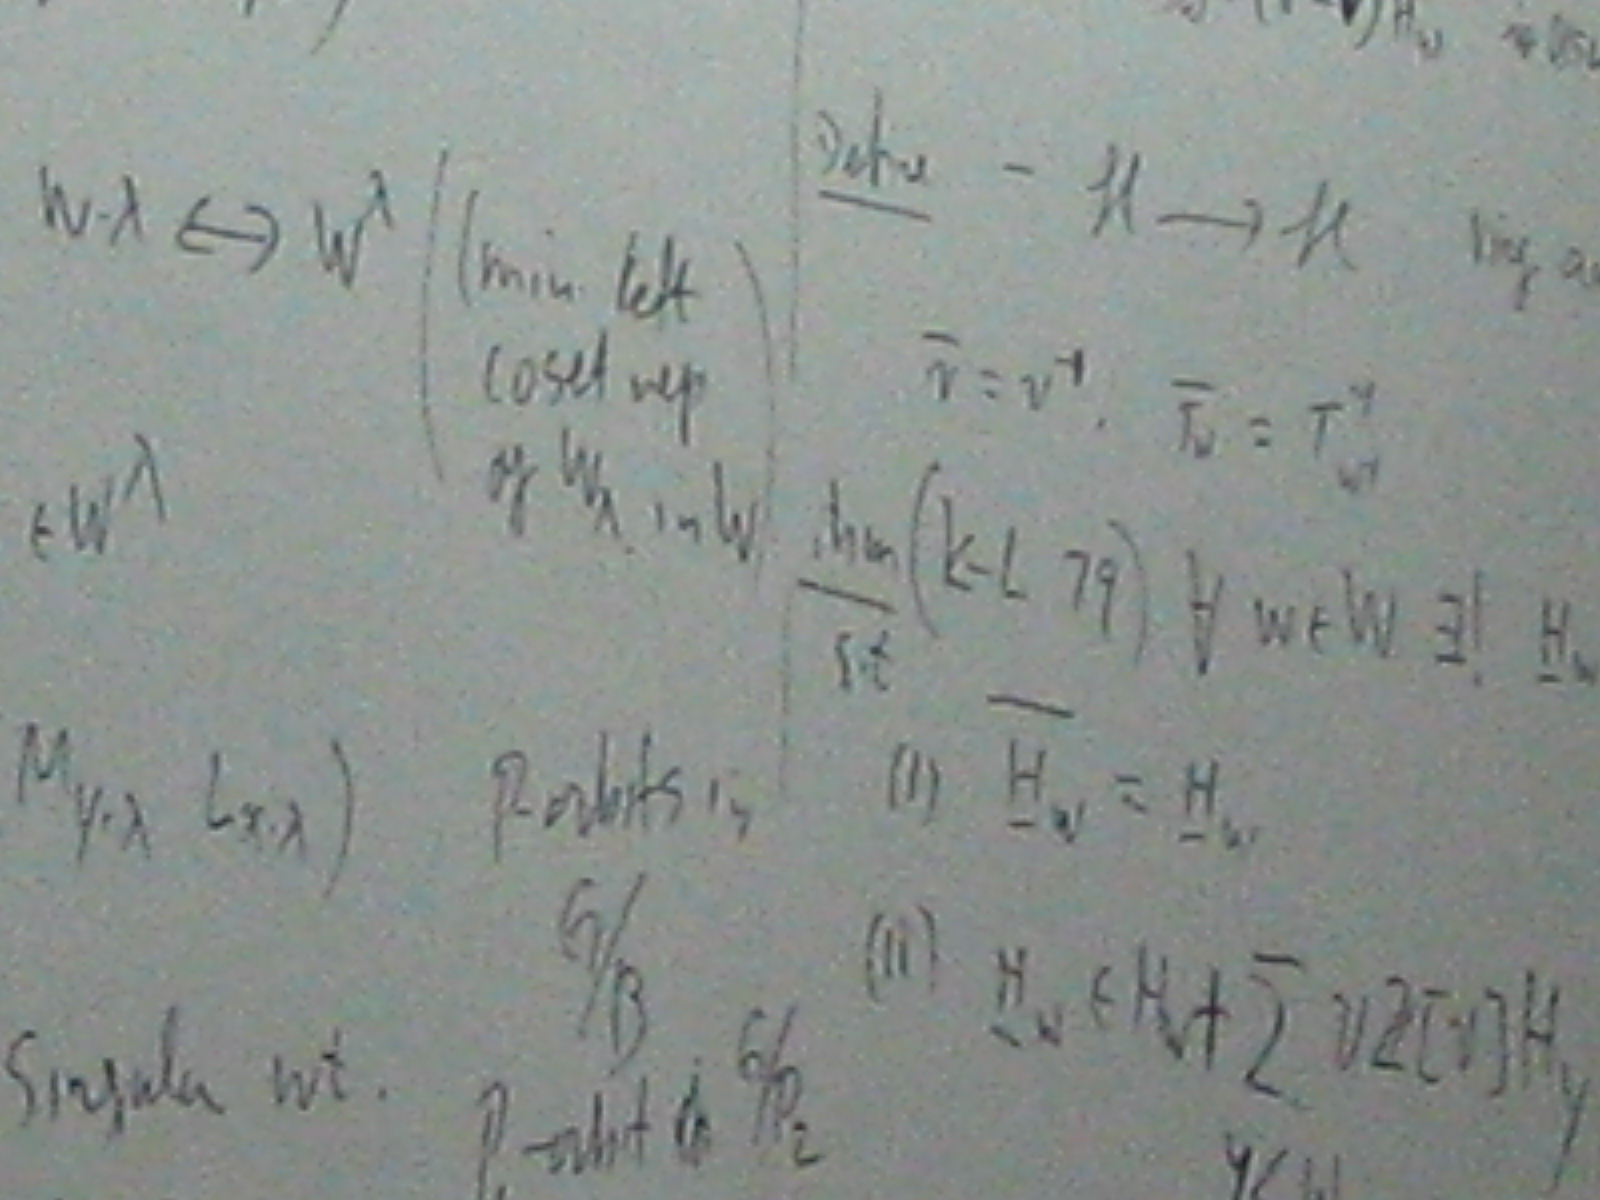 W·λ ↔ W^λ (min left
coset rep
of W_λ in W)
∈ W^λ
M_{y·λ} L_{x·λ})
P-orbits in
G/B
Singular wt.
P_1-orbit in G/P_2
H_w
Define - H → H ring
v̄ = v^{-1}, T̄_w = T^{-1}_{w^{-1}}
Thm (K-L 79) ∀ w∈W ∃! H̲_w
s.t
(i) \overline{H̲_w} = H̲_w
(ii) H̲_w ∈ H_w + Σ vZ[v]H_y
y<w